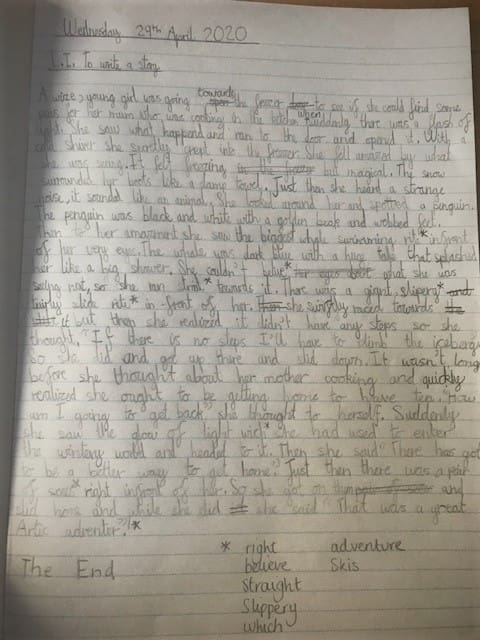 Wednesday 29th April 2020
L.I. To write a story
A wize, young girl was going towards the freezer to see if she could find some
peas for her mum who was cooking in the kitchen when suddenly there was a flash of
light. She saw what happend and ran to the door and opend it. With a
cold shiver she silently crept into the freezer. She felt amazed by what
she was seing. It felt freezing but magical. The snow
surrounded her boots like a damp towel. Just then she heard a strange
noise, it sounded like an animal. She looked around her and spotted a penguin.
The penguin was black and white with a golden beak and webbed feet.
Then to her amazment she saw the biggest whale swimming rite* infront
of her very eyes. The whale was dark blue with a huge tale that splashed
her like a big shower. She couldn't belive* what she was
seing but, so she ran strat* towards it. There was a giant, slipery*
twirly slide rite* in front of her. she swiftly raced towards
it but then she realized it didn't have any steps so she
thought, "If there is no steps I'll have to climb the iceberg"
so she did and got up there and slid down. It wasn't long
before she thought about her mother cooking and quickly
realized she ought to be getting home to have tea. "How
am I going to get back" she thought to herself. Suddenly
she saw the glow of light wich* she had used to enter
the wintery world and headed to it. Then she said "There has got
to be a better way to get home." Just then there was a pair
of right infront of her. So she got on them and
slid home and while she did she said "That was a great
Artic adventer"!*
* right adventure
believe Skis
Straight
Slippery
which
The End